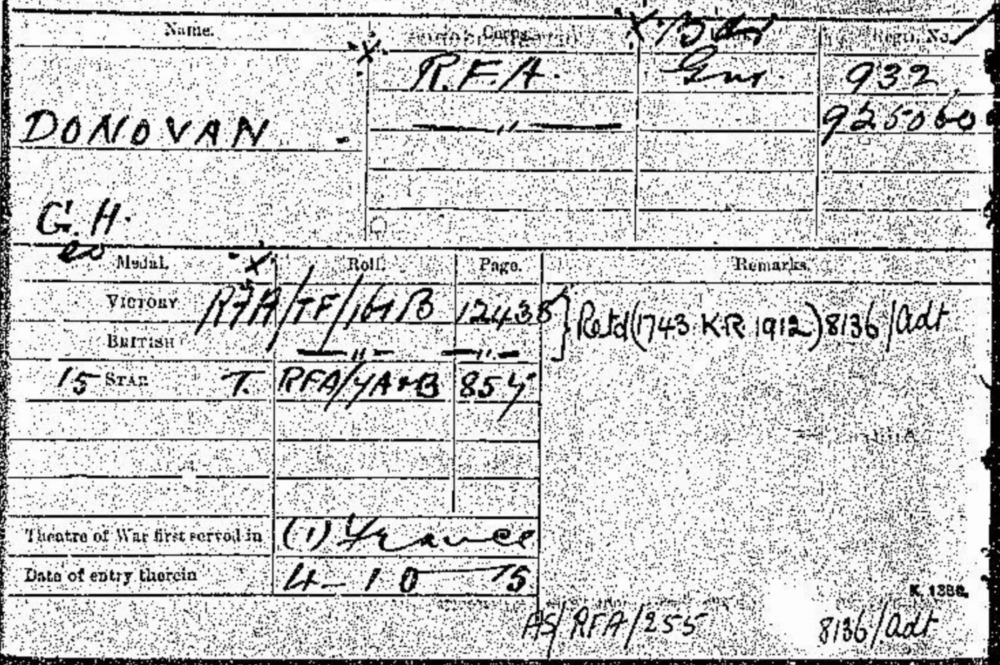 Name. Corps. X Bdr Regtl. No.
X R.F.A. Gnr. 932
DONOVAN - — " — 925060
G. H.
Medal. X Roll. Page. Remarks.
VICTORY RFA/TF/164B 12438 } Retd (1743 KR 1912) 8136/Adt
BRITISH — " — — " —
15 STAR T. RFA/4A+B 854
Theatre of War first served in (1) France
Date of entry therein 4-10-15.
K. 1380.
AS/RFA/255 8136/Adt